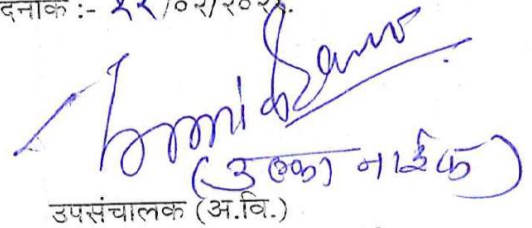 दिनांक :- २२/०२/२०२
(उल्का नाईक)
उपसंचालक (अ.वि.)